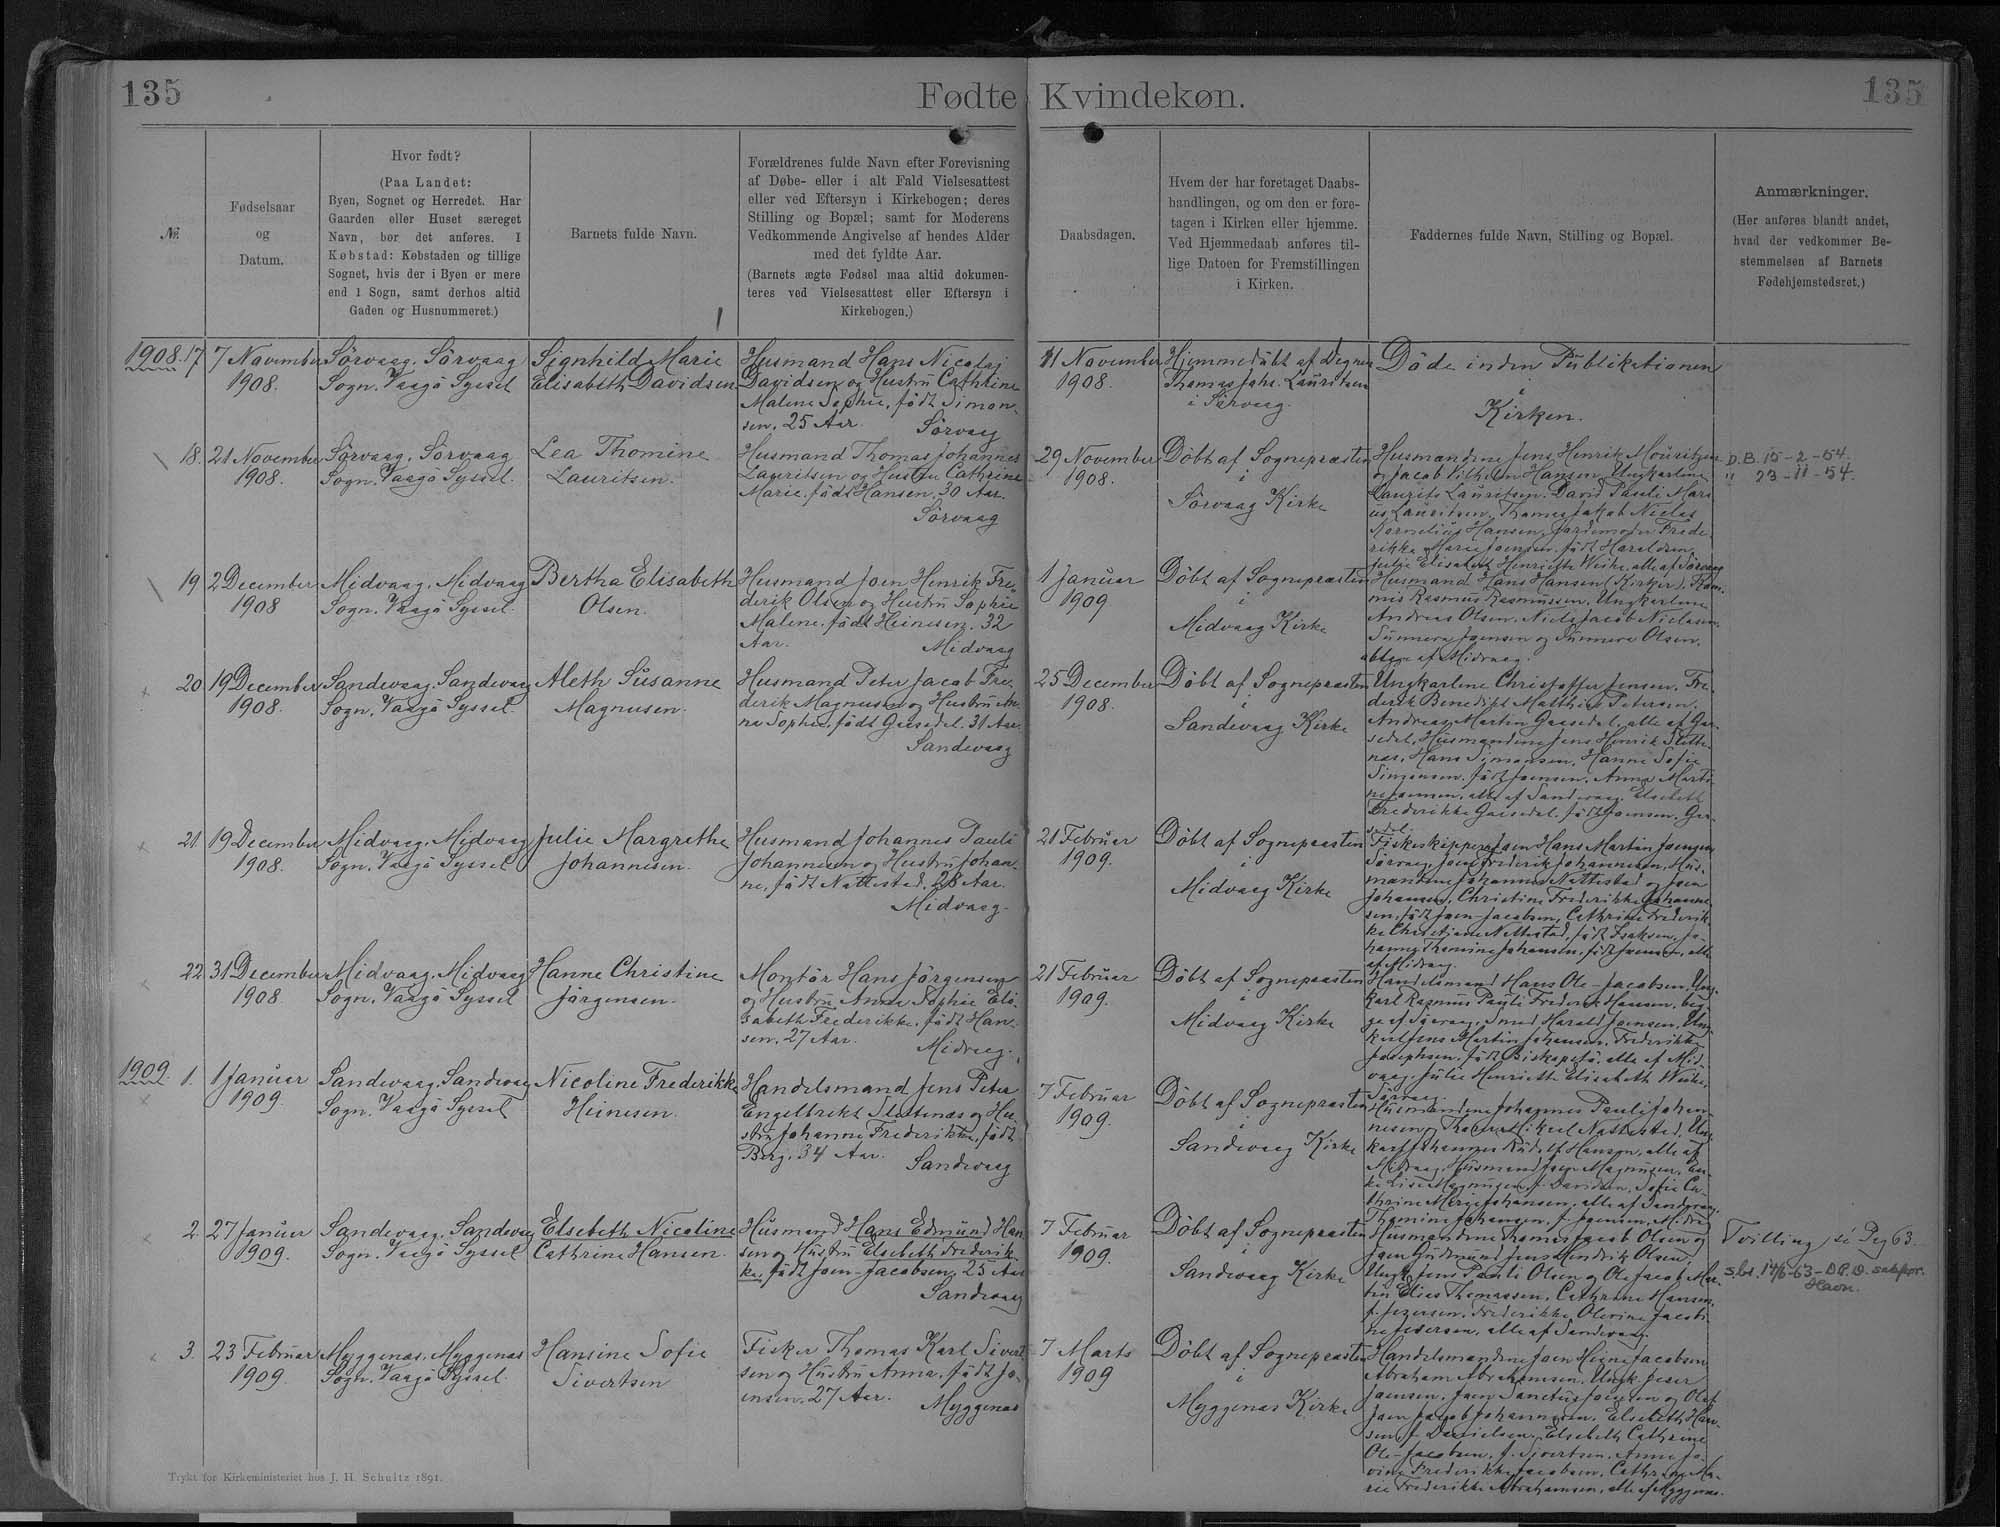 135
Fødte Kvindekøn.
135
№
Fødselsaar
og
Datum.
Hvor født?
(Paa Landet:
Byen, Sognet og Herredet. Har
Gaarden eller Huset særeget
Navn, bør det anføres. I
Købstad: Købstaden og tillige
Sognet, hvis der i Byen er mere
end 1 Sogn, samt derhos altid
Gaden og Husnummeret.)
Barnets fulde Navn.
Forældrenes fulde Navn efter Forevisning
af Døbe- eller i alt Fald Vielsesattest
eller ved Eftersyn i Kirkebogen; deres
Stilling og Bopæl; samt for Moderens
Vedkommende Angivelse af hendes Alder
med det fyldte Aar.
(Barnets ægte Fødsel maa altid dokumen-
teres ved Vielsesattest eller Eftersyn i
Kirkebogen.)
Daabsdagen.
Hvem der har foretaget Daabs-
handlingen, og om den er fore-
tagen i Kirken eller hjemme.
Ved Hjemmedaab anføres til-
lige Datoen for Fremstillingen
i Kirken.
Faddernes fulde Navn, Stilling og Bopæl.
Anmærkninger.
(Her anføres blandt andet,
hvad der vedkommer Be-
stemmelsen af Barnets
Fødehjemstedsret.)
1908. 17
7 November
1908.
Sörvaag. Sörvaag
Sogn. Vaagö Syssel
Signhild Marie
Elisabeth Davidsen
Husmand Hans Nicolaj
Davidsen og Hustru Cathrine
Malene Sophie, födt Simon-
sen, 25 Aar.
Sörvaag
11 November
1908.
Hjemmedöbt af Degnen
Thomas Johs. Lauritsen
i Sörvaag.
Döde inden Publikationen
i
Kirken.
18.
21 November
1908.
Sörvaag. Sörvaag
Sogn. Vaagö Syssel.
Lea Thomine
Lauritsen.
Husmand Thomas Johannes
Lauritsen og Hustru Cathrine
Marie, födt Hansen, 30 Aar.
Sörvaag
29 November
1908.
Döbt af Sognepræsten
i
Sörvaag Kirke
Husmændene Jens Henrik Mouritzen
og Jacob Vilhelm Hansen, Ungkarlene
Laurits Lauritsen, David Pauli Mari
us Lauritsen, Thomas Jakob Niclas
Kornelius Hansen, Jordemoder Frede-
rikke Marie Joensen, födt Haraldsen,
Julie Elisabeth Henriette Weihe, alle af Sörvaag
D.B. 15-2-54.
" 23-11-54.
19
2 December
1908
Midvaag. Midvaag
Sogn. Vaagö Syssel.
Bertha Elisabeth
Olsen.
Husmand Joen Henrik Fre-
derik Olsen og Hustru Sophie
Malene, födt Heinesen, 32
Aar.
Midvaag
1 Januar
1909.
Döbt af Sognepræsten
i
Midvaag Kirke
Husmand Hans Hansen (Kirker),
Rasmus Rasmussen, Ungkarlene
Andreas Olsen, Niels Jacob Nielsen
Sunneva Joensen og Sunneva Olsen,
alle af Midvaag.
20
19 December
1908.
Sandevaag. Sandevaag
Sogn. Vaagö Syssel.
Aleth Susanne
Magnusen.
Husmand Peter Jacob Fre-
derik Magnusen og Hustru An-
ne Sophie, födt Gaasedel. 31 Aar.
Sandevaag
25 December
1908.
Döbt af Sognepræsten
i
Sandevaag Kirke
Ungkarlene Christoffer Jensen, Fre-
derik Benedikt Matthias Petersen,
Andreas Martin Gaasedel, alle af Gaa-
sedel, Husmændene Jens Henrik Slette-
næs, Hans Simonsen, Hanne Sofie
Simonsen, födt Joensen, Anna Marti-
ne Joensen, alle af Sandevaag. Elsebeth
Frederikke Gaasedel, födt Joensen, Gaa-
sedel.
21.
19 December
1908.
Midvaag. Midvaag
Sogn. Vaagö Syssel
Julie Margrethe
Johannesen.
Husmand Johannes Pauli
Johannesen og Hustru Johan-
ne, födt Nattestad, 28 Aar.
Midvaag.
21 Februar
1909.
Döbt af Sognepræsten
i
Midvaag Kirke
Fiskeskipper Joen Hans Martin Joensen
Sörvaag, Joen Frederik Johannesen, Hus-
mændene Johannes Nattestad og Joen
Johansen, Christine Frederikke Johanne-
sen, födt Joen-Jacobsen, Cathrine Frederik-
ke Christiane Nattestad, födt Isaksen, Jo-
hanne Thomine Johansen, födt Joensen, alle
af Midvaag.
22.
31 December
1908.
Midvaag. Midvaag
Sogn. Vaagö Syssel
Hanne Christine
Jörgensen.
Montör Hans Jörgensen
og Hustru Anna Sophie Eli-
sabeth Frederikke, födt Han-
sen, 27 Aar.
Midvaag.
21 Februar
1909.
Döbt af Sognepræsten
i
Midvaag Kirke
Handelsmand Hans Ole-Jacobsen, Ung-
karl Rasmus Pauli Frederik Hansen, beg-
ge af Sörvaag, Smed Harald Joensen, Ung-
karl Jens Martin Johansen, Frederikke
Josephsen, födt Biskopstö, alle af Mid-
vaag, Julie Henriette Elisabeth Weihe,
Sörvaag.
1909. 1.
1 Januar
1909.
Sandevaag. Sandevaag
Sogn. Vaagö Syssel
Nicoline Frederikke
Heinesen.
Handelsmand Jens Peter
Engelbrekt Slettenæs og Hu-
stru Johanne Frederikke, födt
Berg, 34 Aar.
Sandevaag
7 Februar
1909.
Döbt af Sognepræsten
i
Sandevaag Kirke
Husmændene Johannes Pauli Johan-
nesen, Thomas Mikael Nattestad, Ung-
karl Johannes Rudolf Hansen, alle af
Midvaag, Husmand Joen Magnusen,
Lise Magnusen, f. Davidsen, Sofie Ca-
thrine Marie Johansen, alle af Sandevaag.
Thomine Johansen, f. Joensen, Midv.
2.
27 Januar
1909.
Sandevaag. Sandevaag
Sogn. Vaagö Syssel
Elsebeth Nicoline
Cathrine Hansen.
Husmand Hans Edmund Han-
sen og Hustru Elsebeth Frederik-
ke, födt Joen-Jacobsen, 25 Aar
Sandevaag
7 Februar
1909.
Döbt af Sognepræsten
i
Sandevaag Kirke
Husmændene Thomas Jacob Olsen og
Joen Gudmund Jens Hendrik Olsen,
Ungk. Jens Pauli Olsen og Ole Jacob Mar-
tin Elias Thomassen, Cathrine Hansen,
f. Jespersen, Frederikke Olevine Jacobi-
ne Pedersen, alle af Sandevaag.
Tvilling, se Pag 63.
s.br. 14/6-63 - D.P.O.
Havn.
3.
23 Februar
1909.
Myggenæs. Myggenæs
Sogn. Vaagö Syssel.
Hansine Sofie
Sivertsen
Fisker Thomas Karl Sivert-
sen og Hustru Anna, födt Jo-
ensen, 27 Aar.
Myggenæs
7 Marts
1909
Döbt af Sognepræsten
i
Myggenæs Kirke
Handelsmændene Joen Heine Jacobsen
Abraham Abrahamsen, Ungk. Peter
Joensen, Joen Sanctus Joensen og Olaf
Joen Jacob Johannesen, Elsebeth Han-
sen, f. Danielsen, Elsebeth Cathrine
Ole-Jacobsen, f. Sivertsen, Anna Jo-
vine Frederikke Jacobsen, Cathrine Ma-
rie Frederikke Abrahamsen, alle af Myggenæs.
Trykt for Kirkeministeriet hos J. H. Schultz 1891.